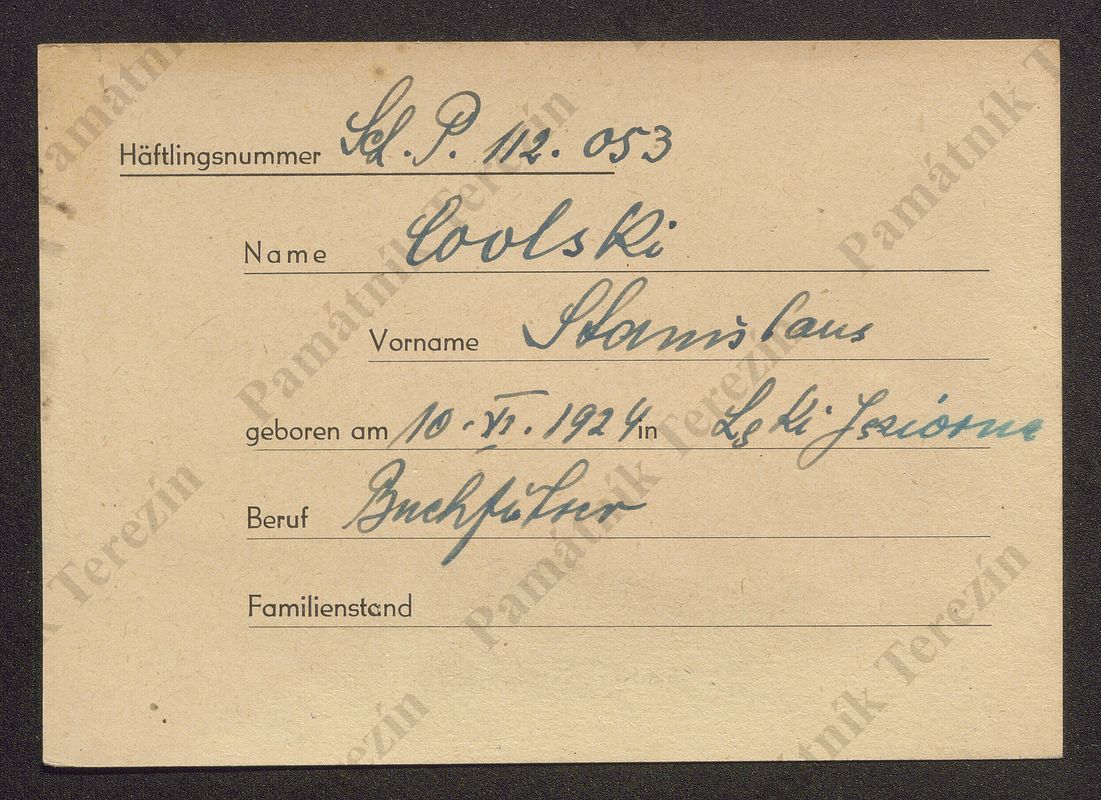 Häftlingsnummer Sch. P. 112.053
Name Coolski
Vorname Stanislaus
geboren am 10. VI. 1924 in Łęki
Beruf Buchführer
Familienstand
Památník Terezín